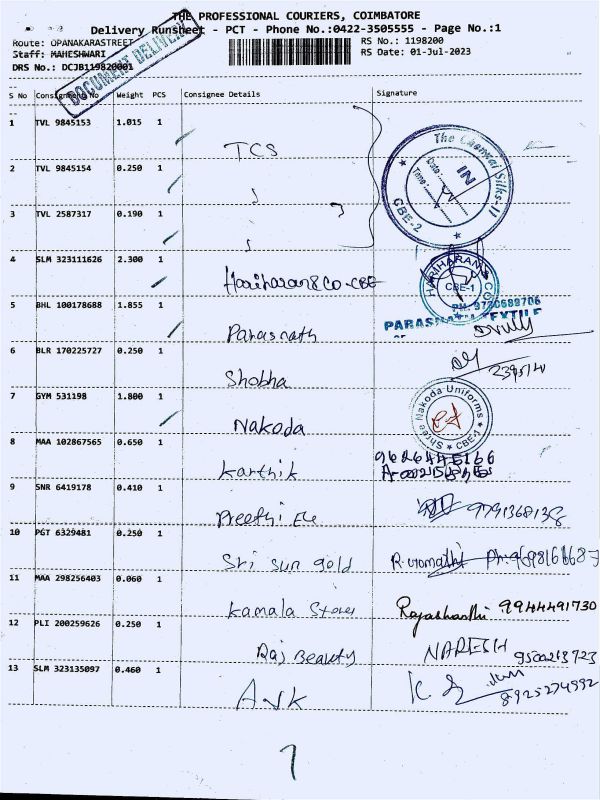 THE PROFESSIONAL COURIERS, COIMBATORE
Delivery Runsheet - PCT - Phone No.:0422-3505555 - Page No.:1
Route: OPANAKARASTREET
RS No.: 1198200
Staff: MAHESHWARI
RS Date: 01-Jul-2023
DRS No.: DCJB119820001
DOCUMENT DELIVERY
S No Consignment No Weight PCS Consignee Details Signature
1 TVL 9845153 1.015 1
TCS
The Chennai Silks-II
IN
Date:
Time:
CBE-2
2 TVL 9845154 0.250 1
3 TVL 2587317 0.190 1
4 SLM 323111626 2.300 1
Hariharan & Co-CBE
HARIHARAN & CO
CBE-1
5 BHL 100178688 1.855 1
Parasnath
PH: 9720689706
PARASNATH TEXTILE
6 BLR 170225727 0.250 1
Shobha
7 GYM 531198 1.800 1
Nakoda
Shree Nakoda Uniforms
CBE-1
8 MAA 102867565 0.650 1
Karthik
9 SNR 6419178 0.410 1
Preethi Ele
9791368138
10 PGT 6329481 0.250 1
Sri sun gold
R. Gomathi
11 MAA 298256403 0.060 1
Kamala Stores
9944491730
12 PLI 200259626 0.250 1
Raj Beauty
NARESH
9500213723
13 SLM 323135097 0.460 1
AVK
8925274992
7